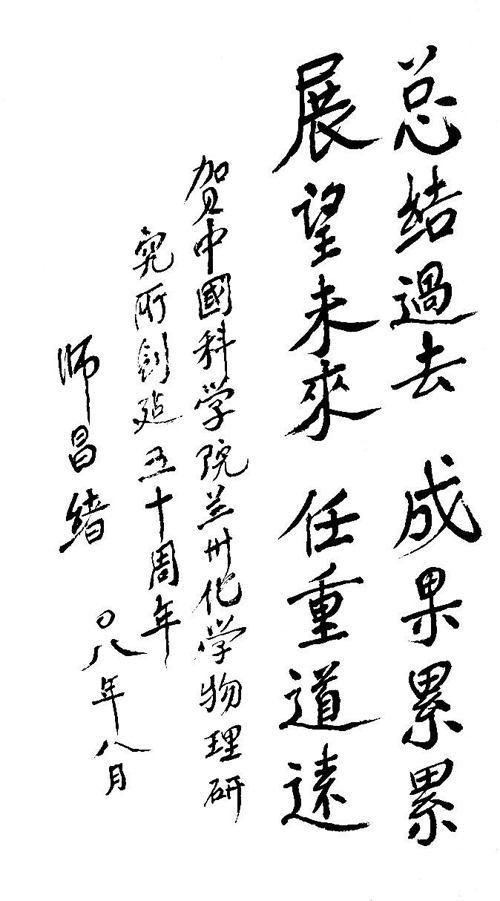 总结過去 成果累累
展望未來 任重道遠
贺中國科学院兰州化学物理研
究所创建五十周年
师昌绪
〇八年八月